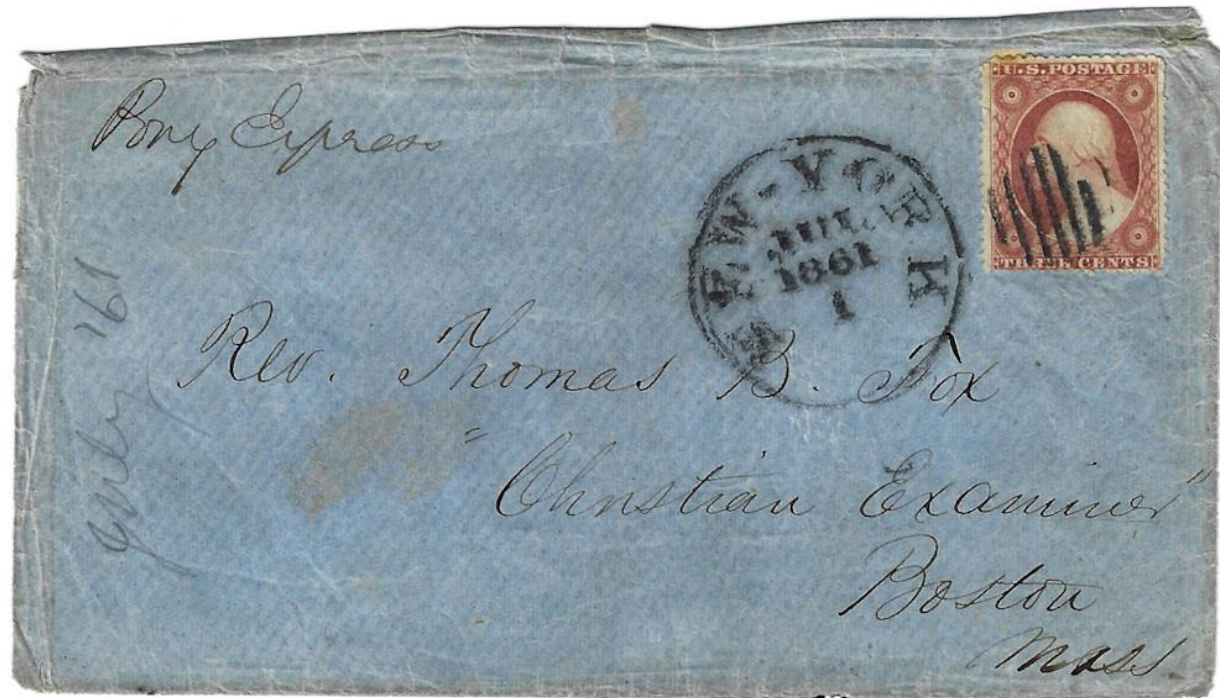 Pony Express
U.S. POSTAGE
THREE CENTS
NEW-YORK
JUL
1861
1
Rev. Thomas B. Fox
"Christian Examiner"
Boston
Mass
July '61